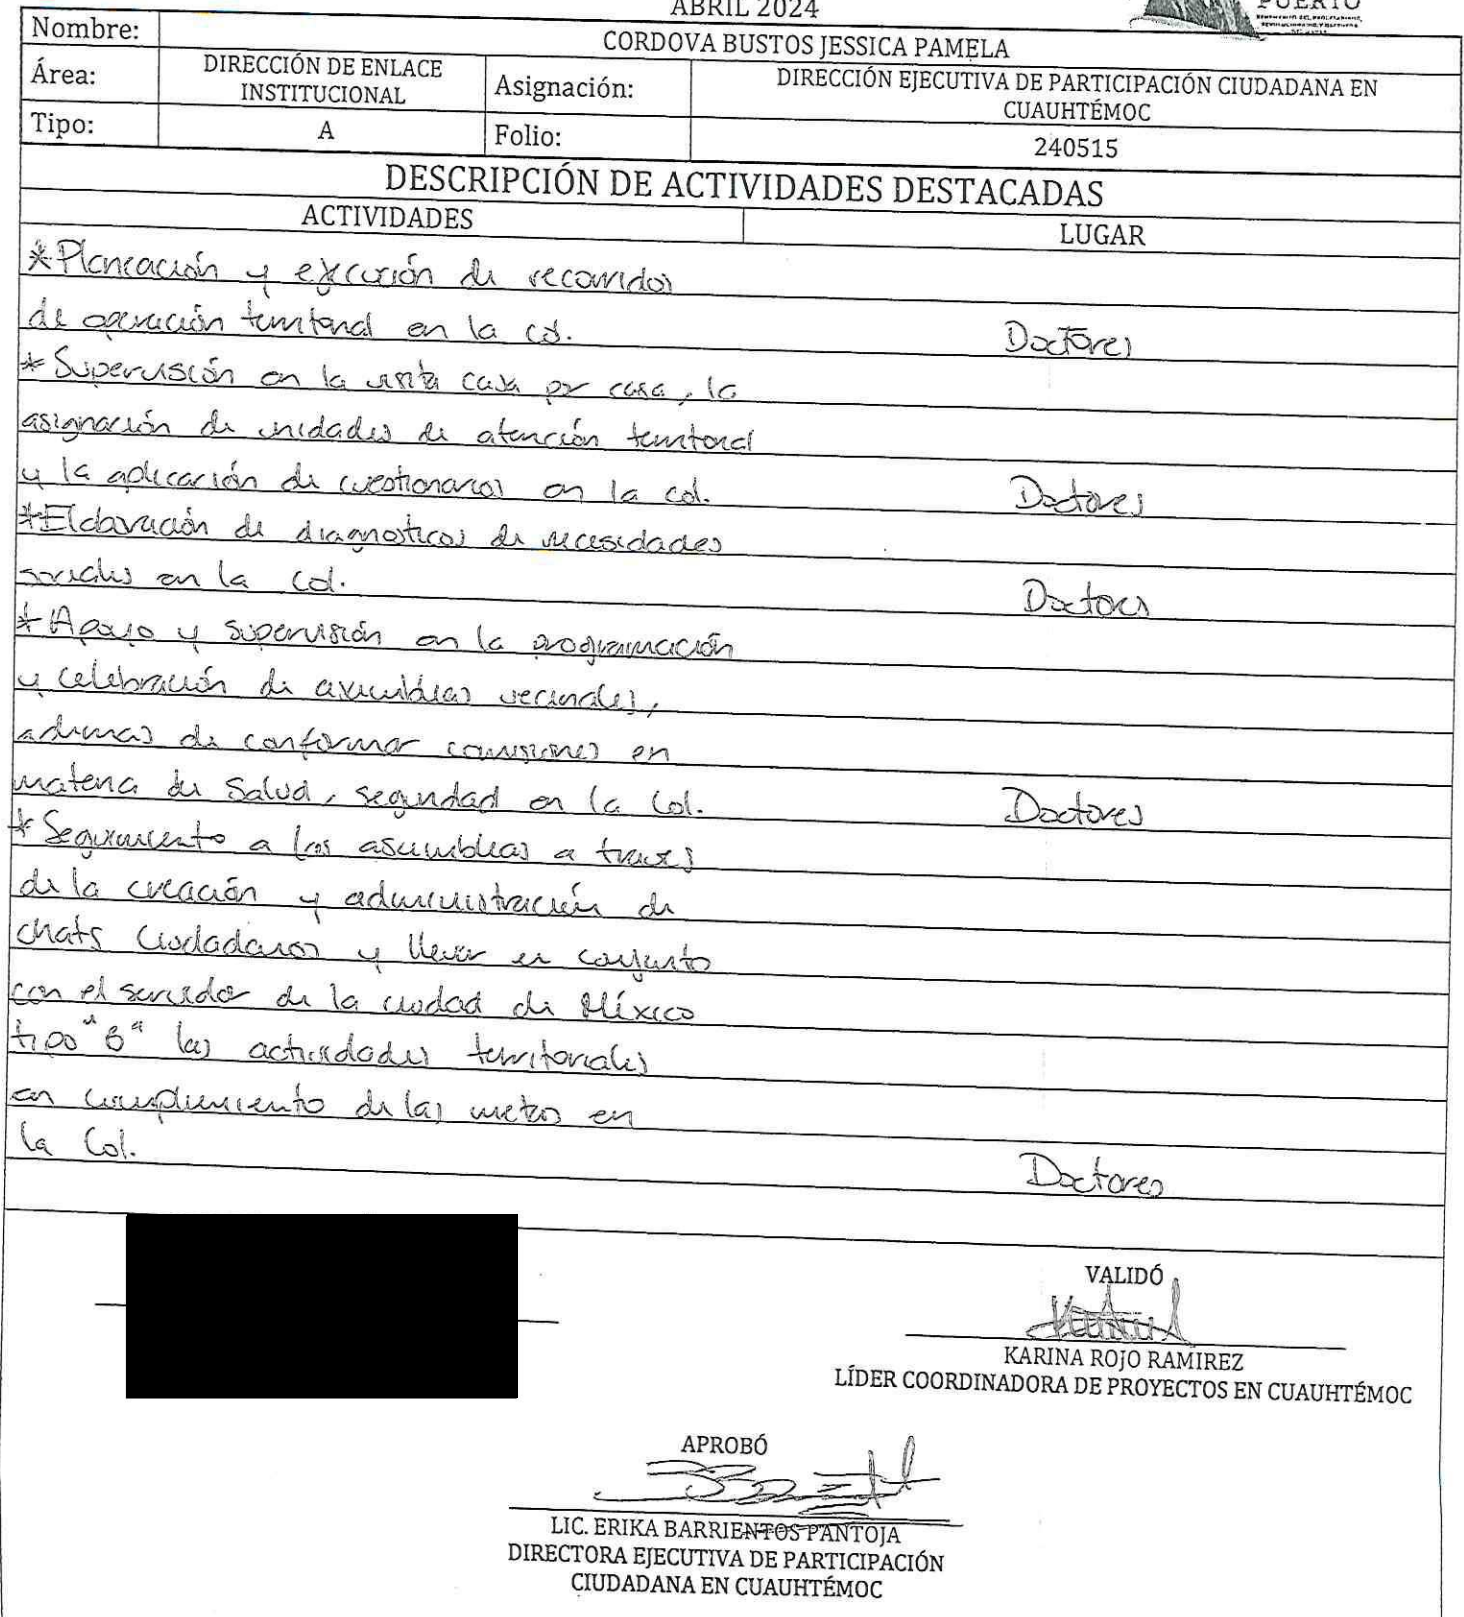 ABRIL 2024
PUERTO
Nombre: CORDOVA BUSTOS JESSICA PAMELA
Área: DIRECCIÓN DE ENLACE INSTITUCIONAL Asignación: DIRECCIÓN EJECUTIVA DE PARTICIPACIÓN CIUDADANA EN CUAUHTÉMOC
Tipo: A Folio: 240515
DESCRIPCIÓN DE ACTIVIDADES DESTACADAS
ACTIVIDADES LUGAR
*Planeación y ejecución de recorridos
de operación territorial en la col. Doctores
* Supervisión en la visita casa por casa, la
asignación de unidades de atención territorial
y la aplicación de cuestionarios en la col. Doctores
*Elaboración de diagnosticos de necesidades
sociales en la col. Doctores
* Apoyo y supervisión en la programación
y celebración de asambleas vecinales,
ademas de conformar comisiones en
materia de Salud, seguridad en la Col. Doctores
* Seguimiento a las asambleas a traves
de la creación y administración de
chats Ciudadanos y llevar en conjunto
con el servidor de la ciudad de México
tipo "B" las actividades territoriales
en cumplimiento de las metas en
la Col. Doctores
VALIDÓ
KARINA ROJO RAMIREZ
LÍDER COORDINADORA DE PROYECTOS EN CUAUHTÉMOC
APROBÓ
LIC. ERIKA BARRIENTOS PANTOJA
DIRECTORA EJECUTIVA DE PARTICIPACIÓN
CIUDADANA EN CUAUHTÉMOC